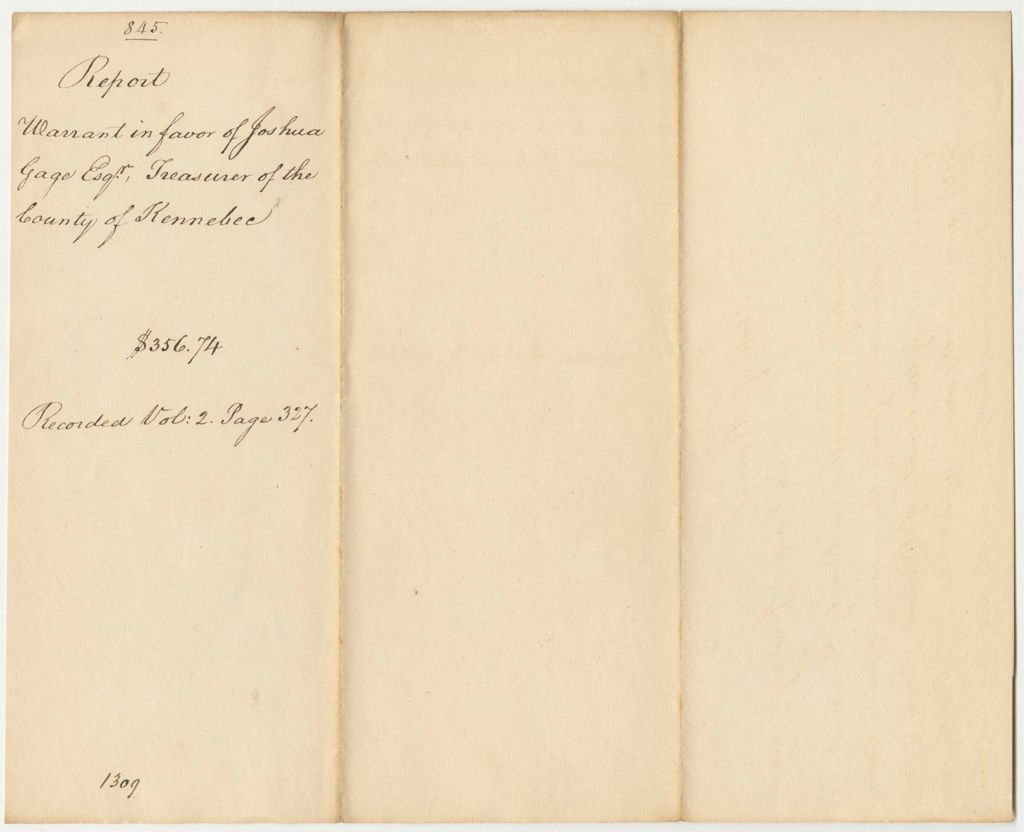 845.
Report
Warrant in favor of Joshua
Gage Esqr, Treasurer of the
County of Kennebec
$356.74
Recorded Vol: 2. Page 327.
1309